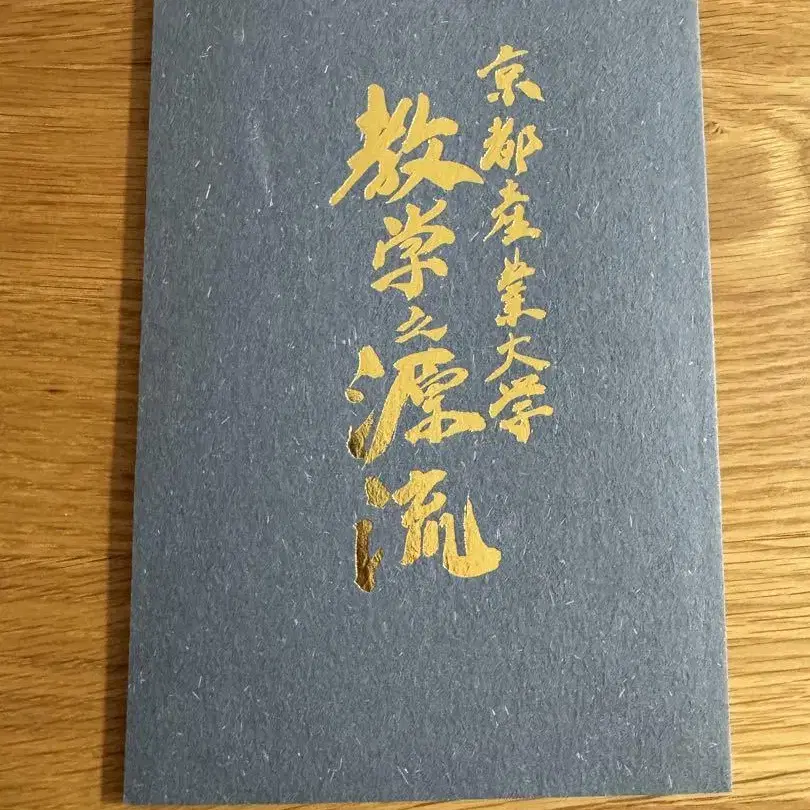 京都産業大学
教学之源流